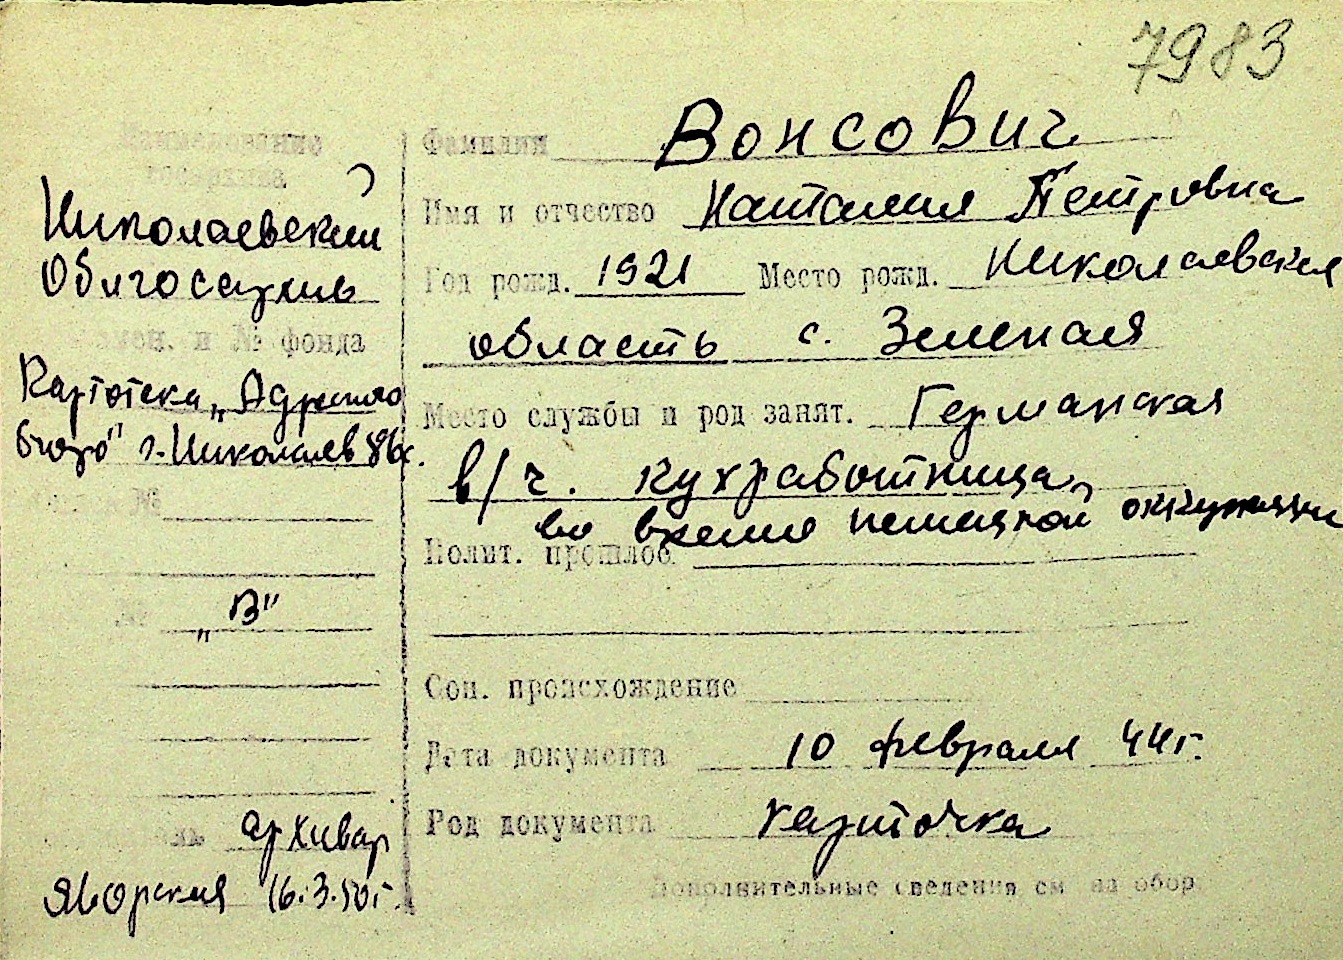 7983
Наименование
госархива
Николаевский
Облгосархив
наимен. и № фонда
Картотека „Адресного
бюро" г. Николаев
№
№ „В"
архивар
Яворская 16.3.50 г.
Фамилия Вонсович
Имя и отчество Наталия Петровна
Год рожд. 1921 Место рожд. Николаевская
область с. Зеленая
Место службы и род занят. Германская
в/ч. кухработница
во время немецкой оккупации
Полит. прошлое
Соц. происхождение
Дата документа 10 февраля 44 г.
Род документа карточка
Дополнительные сведения см на обор.